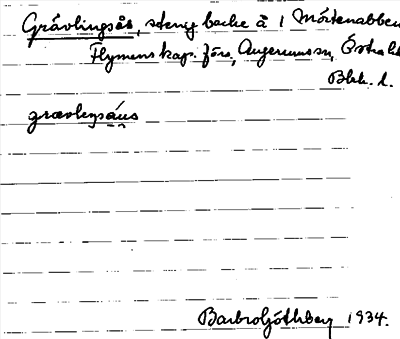 Grävlingsås, stenig backe å 1 Mörtenabben
Flymens kap. förs., Augerums sn, Östra hd
Blek. l.
grævleŋsáus
Barbro Göthberg 1934.